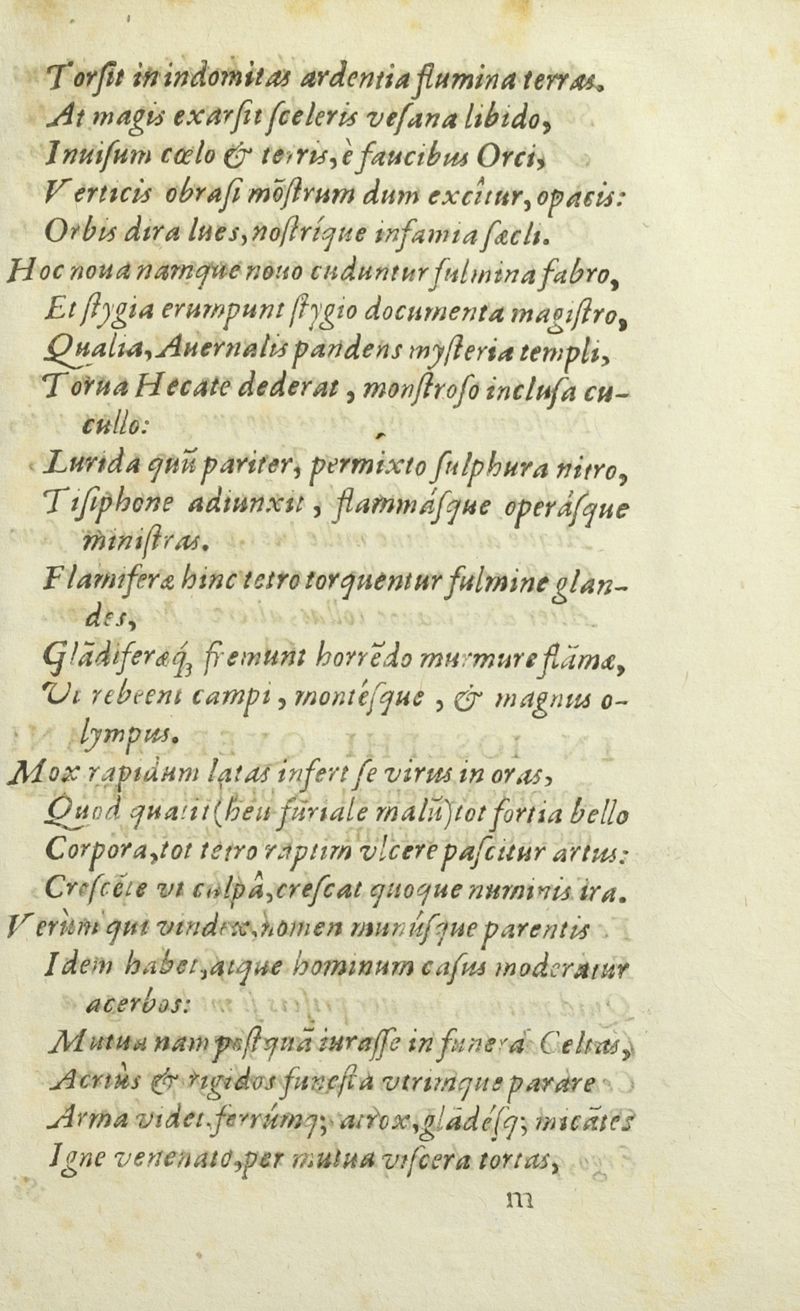 Torſit in indomitas ardentia flumina terras.
At magis exarſit ſceleris veſana libido,
Inuiſum cœlo & terris, è faucibus Orci,
Verticis obraſi mõſtrum dum excîtur, opacis:
Orbis dira lues, noſtríque infamia ſæcli.
Hoc noua namque nouo cuduntur fulmina fabro,
Et ſtygia erumpunt ſtygio documenta magiſtro,
Qualia, Auernalis pandens myſteria templi,
Torua Hecate dederat, monſtroſo incluſa cu-
cullo:
Lurida quũ pariter, permixto ſulphura nitro,
Tiſiphone adiunxit, flammáſque operáſque
miniſtras.
Flamiferæ hinc tetro torquentur fulmine glan-
des,
Glãdiferæq́ꝫ fremunt horrẽdo murmure flãmæ,
Vt reboent campi, montéſque, & magnus o-
lympus.
Mox rapidum latas infert ſe virus in oras,
Quod quatit (heu furiale malũ) tot fortia bello
Corpora, tot tetro raptim vlcere paſcitur artus:
Creſcẽte vt culpâ, creſcat quoque numinis ira.
Verùm qui vindex, nomen munúſque parentis
Idem habet, atque hominum caſus moderatur
acerbos:
Mutua nam poſtquã iuraſſe in funera Celtas,
Acriùs & rigidos funeſta vtrimque parare
Arma videt, ferrúmq; atrox, glãdéſq; micãtes
Igne venenato, per mutua viſcera tortas,
m